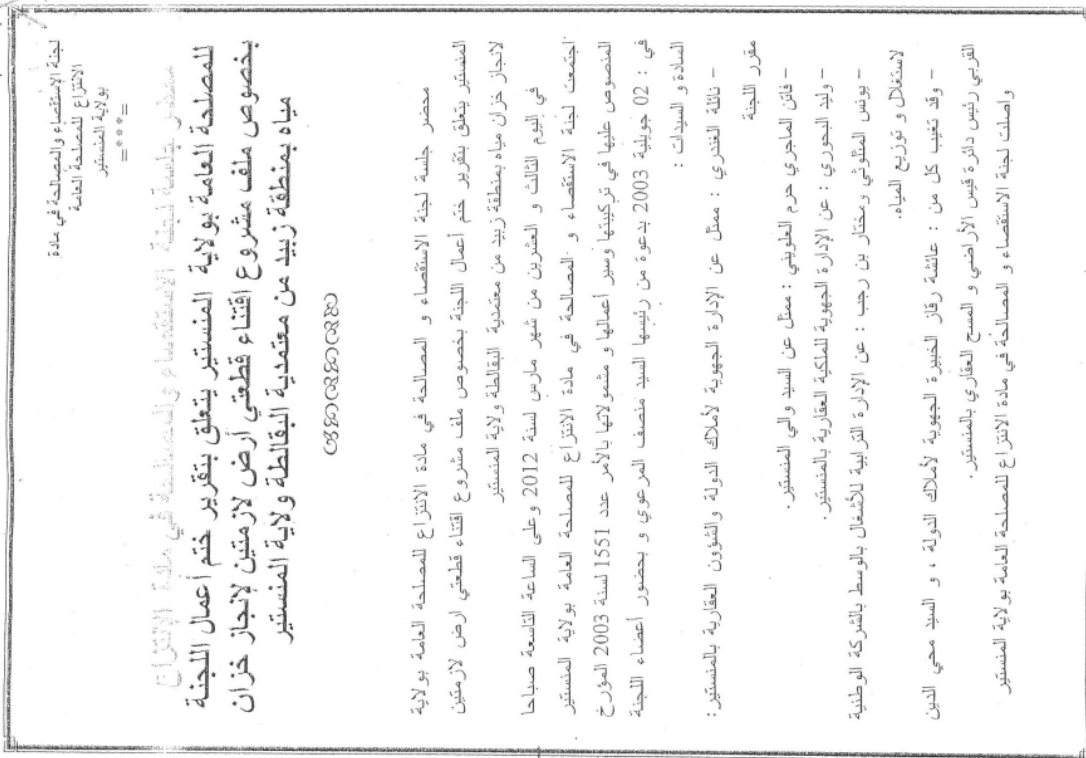 لجنة الاستقصاء والمصالحة في مادة
الانتزاع للمصلحة العامة
بولاية المنستير
=***=
محضر جلسة لجنة الاستقصاء والمصالحة في مادة الانتزاع
للمصلحة العامة بولاية المنستير يتعلق بتقرير ختم أعمال اللجنة
بخصوص ملف مشروع اقتناء قطعتي أرض لازمتين لإنجاز خزان
مياه بمنطقة زبيد من معتمدية البقالطة ولاية المنستير
محضر جلسة لجنة الاستقصاء و المصالحة في مادة الانتزاع للمصلحة العامة بولاية
المنستير يتعلق بتقرير ختم أعمال اللجنة بخصوص ملف مشروع اقتناء قطعتي ارض لازمتين
لانجاز خزان مياه بمنطقة زبيد من معتمدية البقالطة ولاية المنستير
في اليوم الثالث و العشرين من شهر مارس لسنة 2012 وعلى الساعة التاسعة صباحا
اجتمعت لجنة الاستقصاء و المصالحة في مادة الانتزاع للمصلحة العامة بولاية المنستير
المنصوص عليها في تركيبتها وسير أعمالها و مشمولاتها بالأمر عدد 1551 لسنة 2003 المؤرخ
في : 02 جويلية 2003 بدعوة من رئيسها السيد منصف المرعوي و بحضور أعضاء اللجنة
السادة و السيدات :
- نائلة الغندري : ممثل عن الإدارة الجهوية لأملاك الدولة والشؤون العقارية بالمنستير :
مقرر اللجنة
- فاتن الماجري حرم العلويني : ممثل عن السيد والي المنستير .
- وليد البجوري : عن الإدارة الجهوية للملكية العقارية بالمنستير .
- يونس المثلوثي ومختار بن رجب : عن الإدارة الترابية للأشغال بالوسط بالشركة الوطنية
لاستغلال و توزيع المياه.
- وقد تغيب كل من : عائشة رقاز الخبيرة الجهوية لأملاك الدولة ، و السيد محي الدين
القربي رئيس دائرة قيس الأراضي و المسح العقاري بالمنستير .
واصلت لجنة الاستقصاء و المصالحة في مادة الانتزاع للمصلحة العامة بولاية المنستير